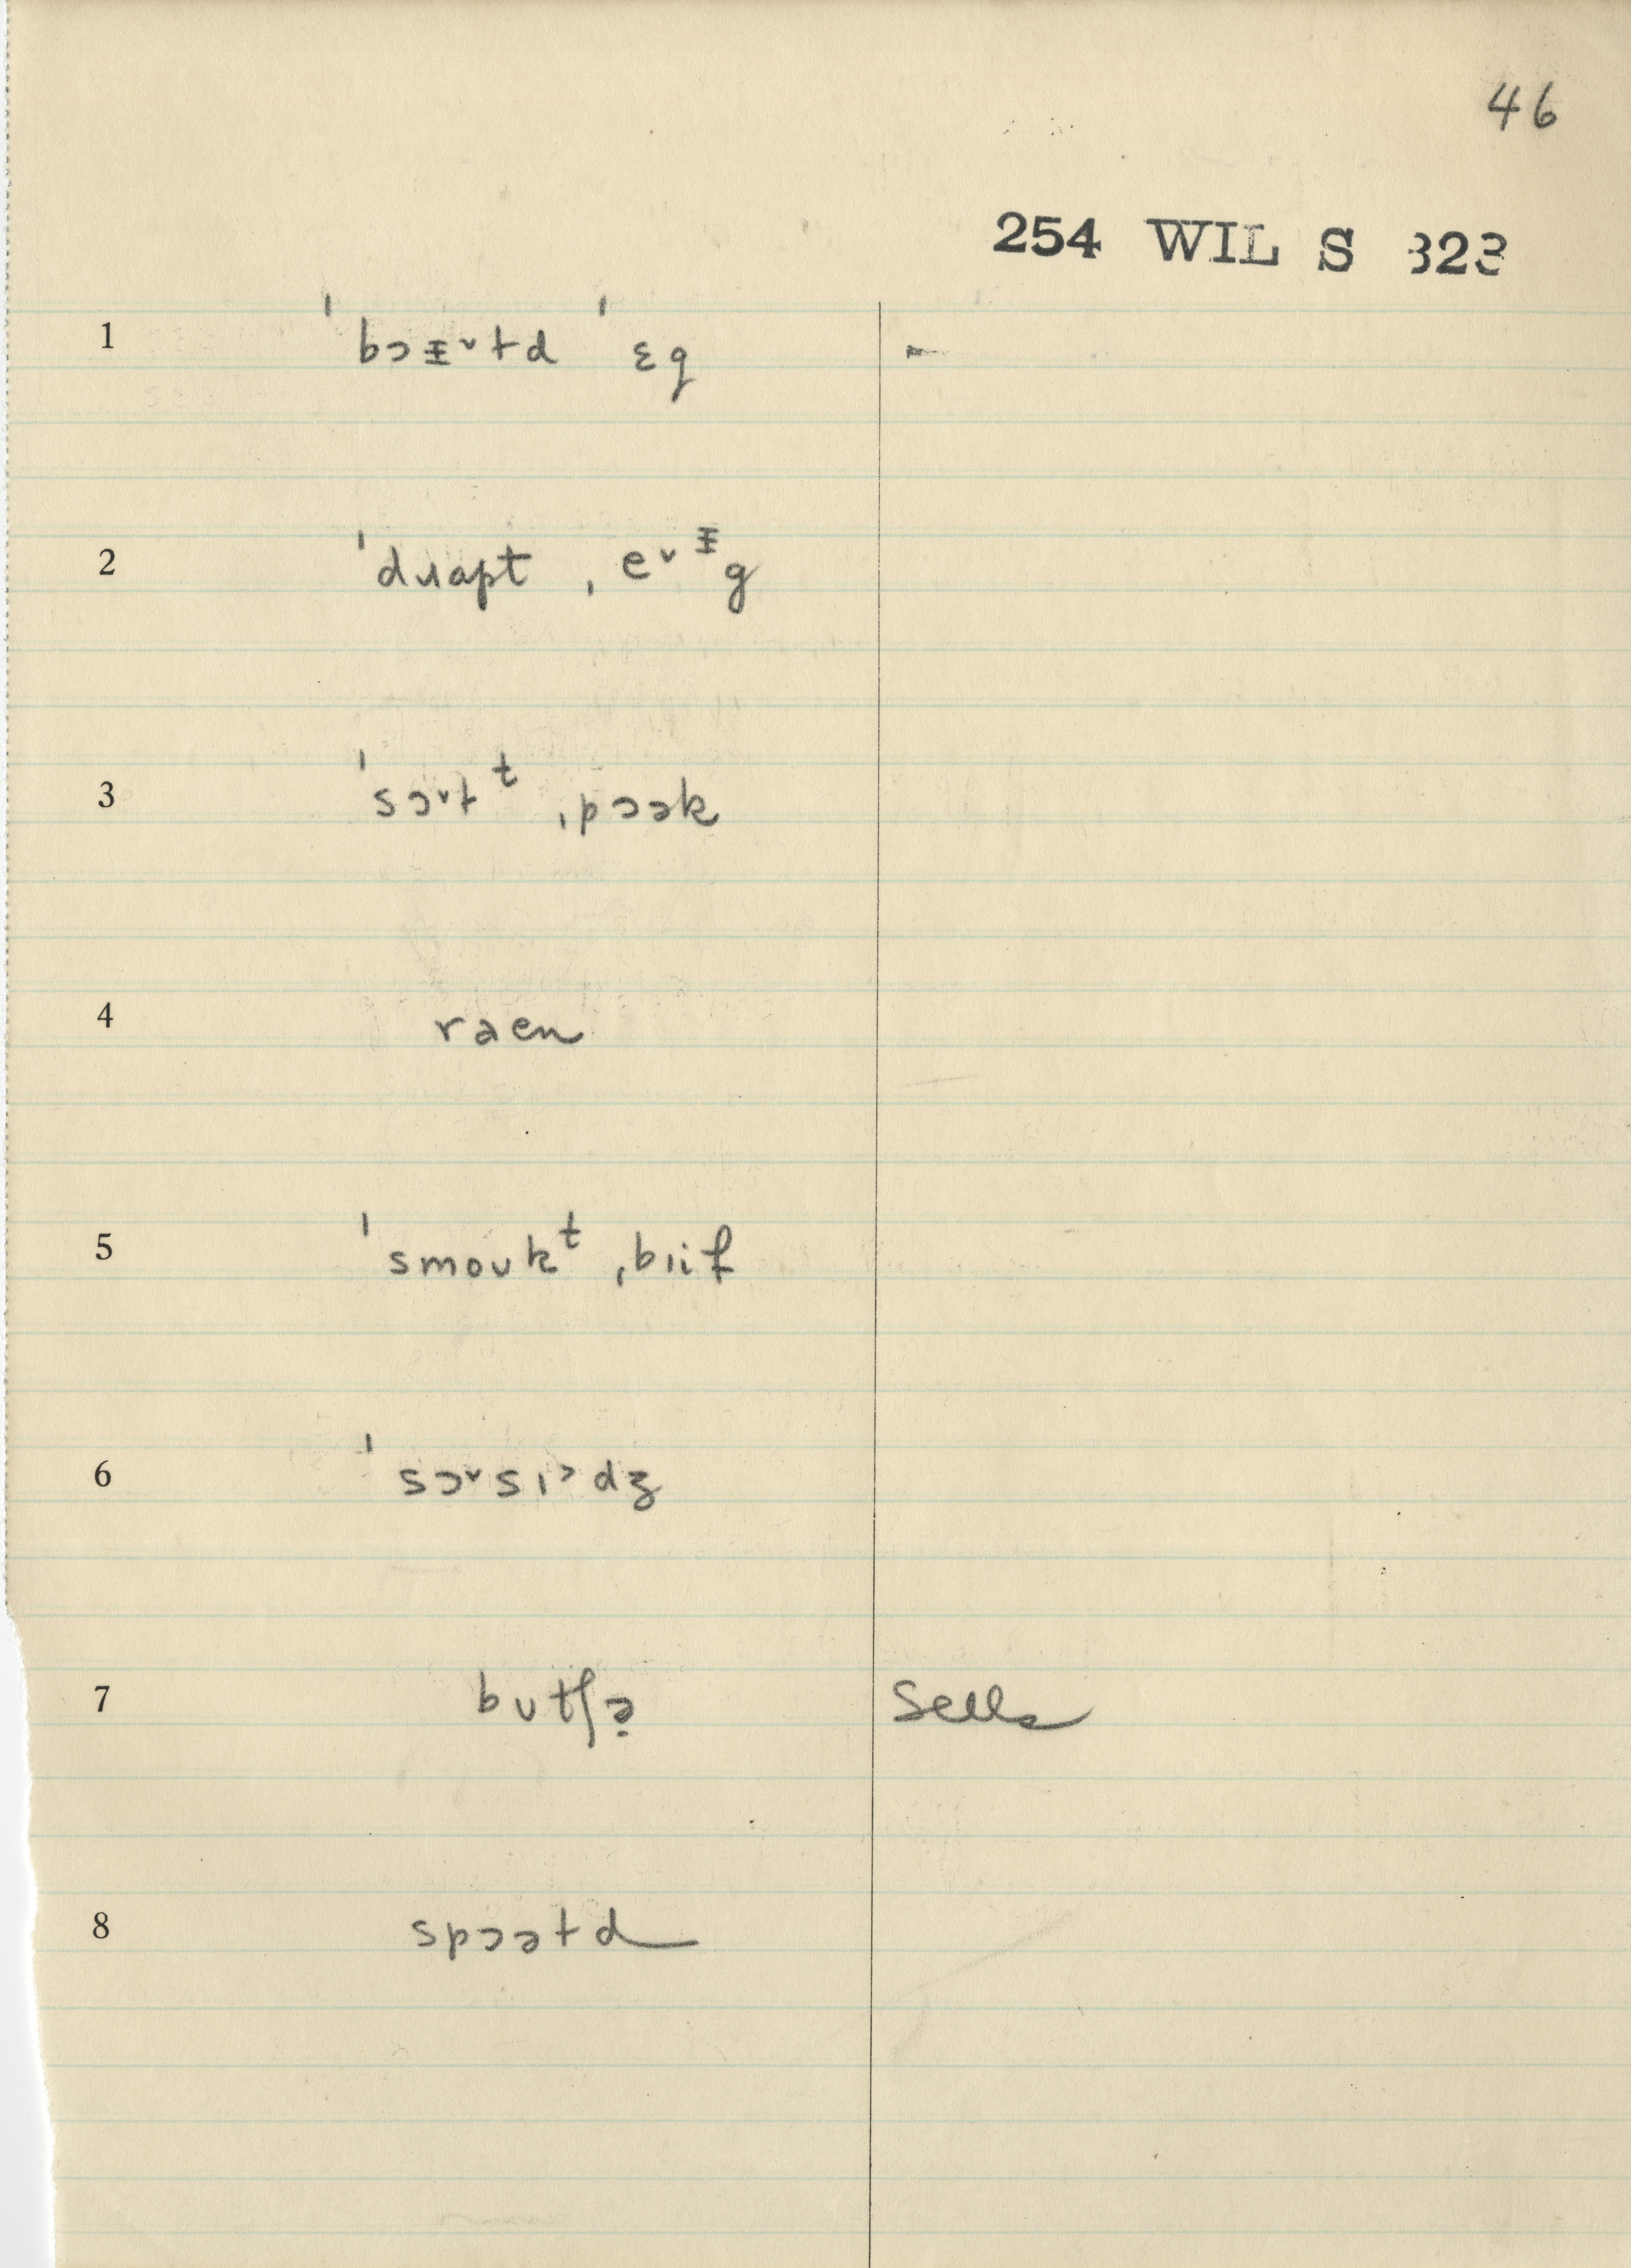 46
254 WIL S 323
1 ˈbɔɪ̵˅ɫd ˈɛg
2 ˈdɹapt ˌe˅ɪ̵g
3 ˈsɔ˅ɫᵗ ˌpɔək
4 raen
5 ˈsmoʊkᵗ ˌbiif
6 ˈsɔ˅sɪ˃dʒ
7 bʊtʃə̣ Sells
8 spɔəɫd